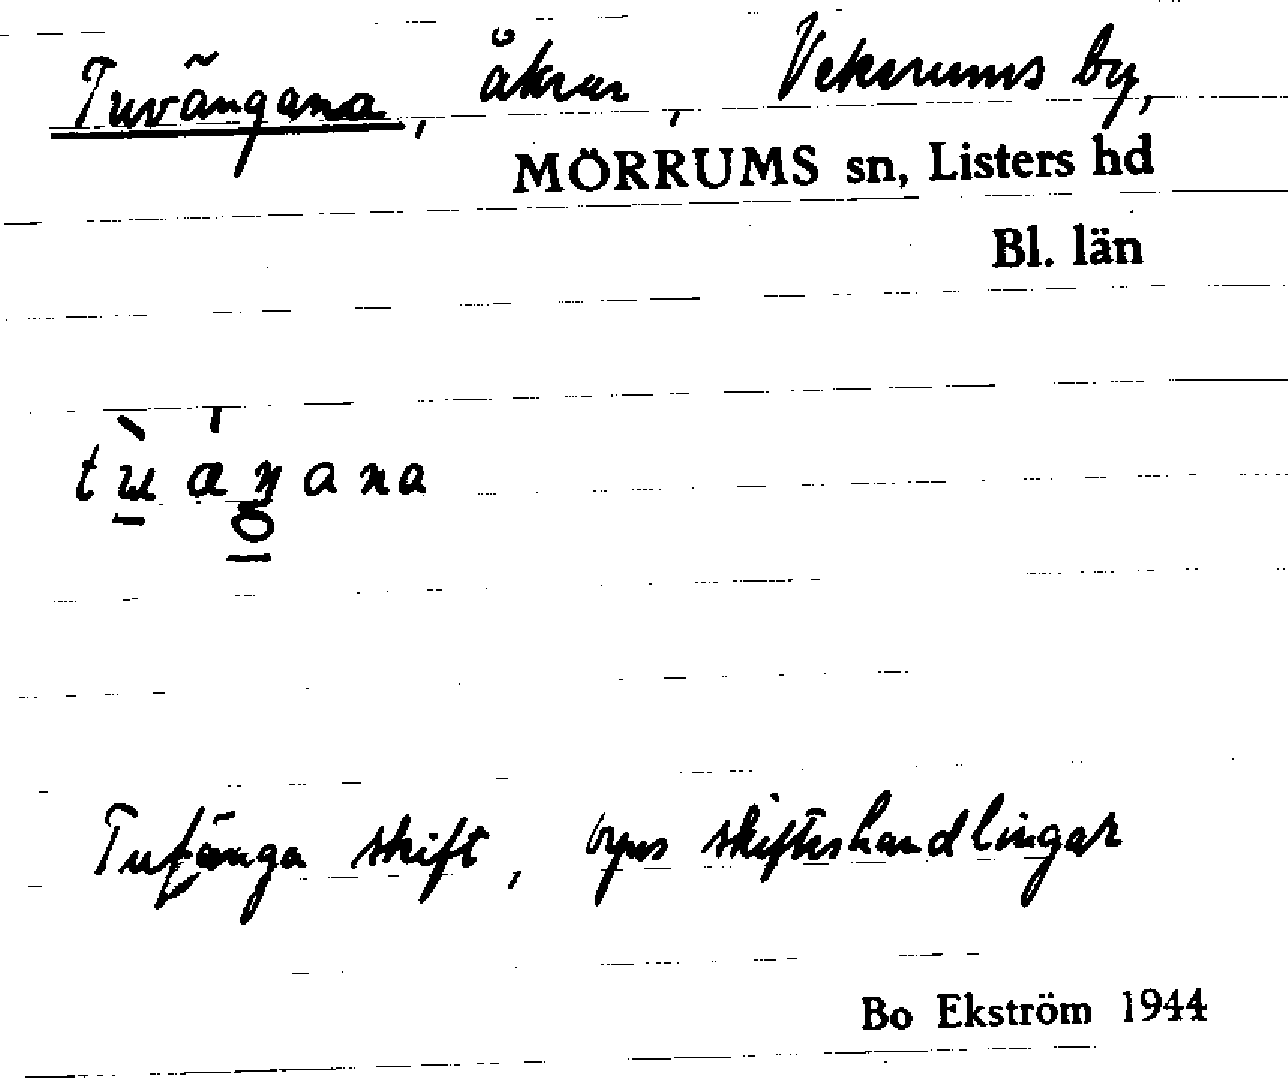 Tuvängana, åkrar, Veksrums by,
MÖRRUMS sn, Listers hd
Bl. län
Tufänga skift, byns skifteshandlingar
Bo Ekström 1944